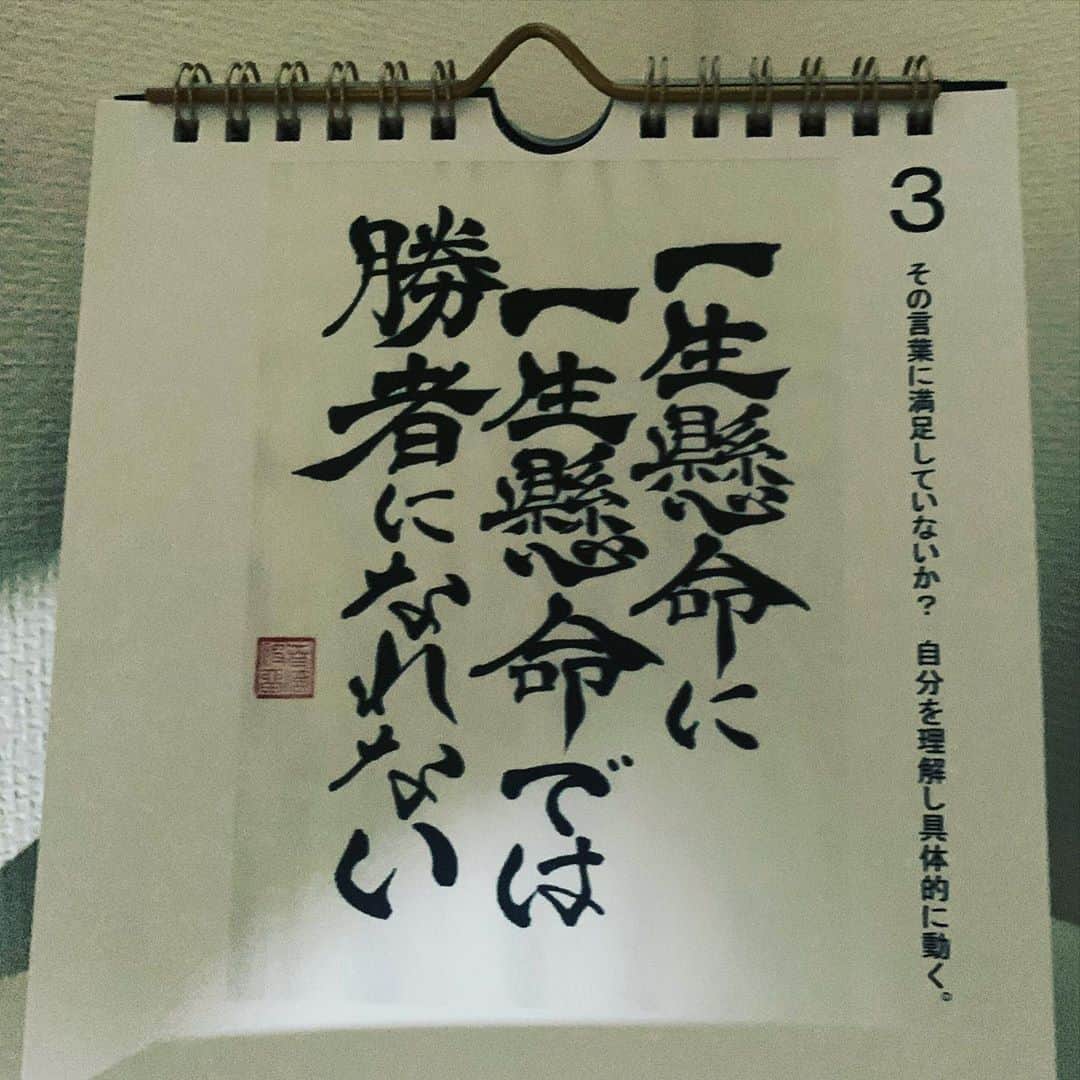 3
その言葉に満足していないか？　自分を理解し具体的に動く。
一生懸命に
一生懸命では
勝者になれない